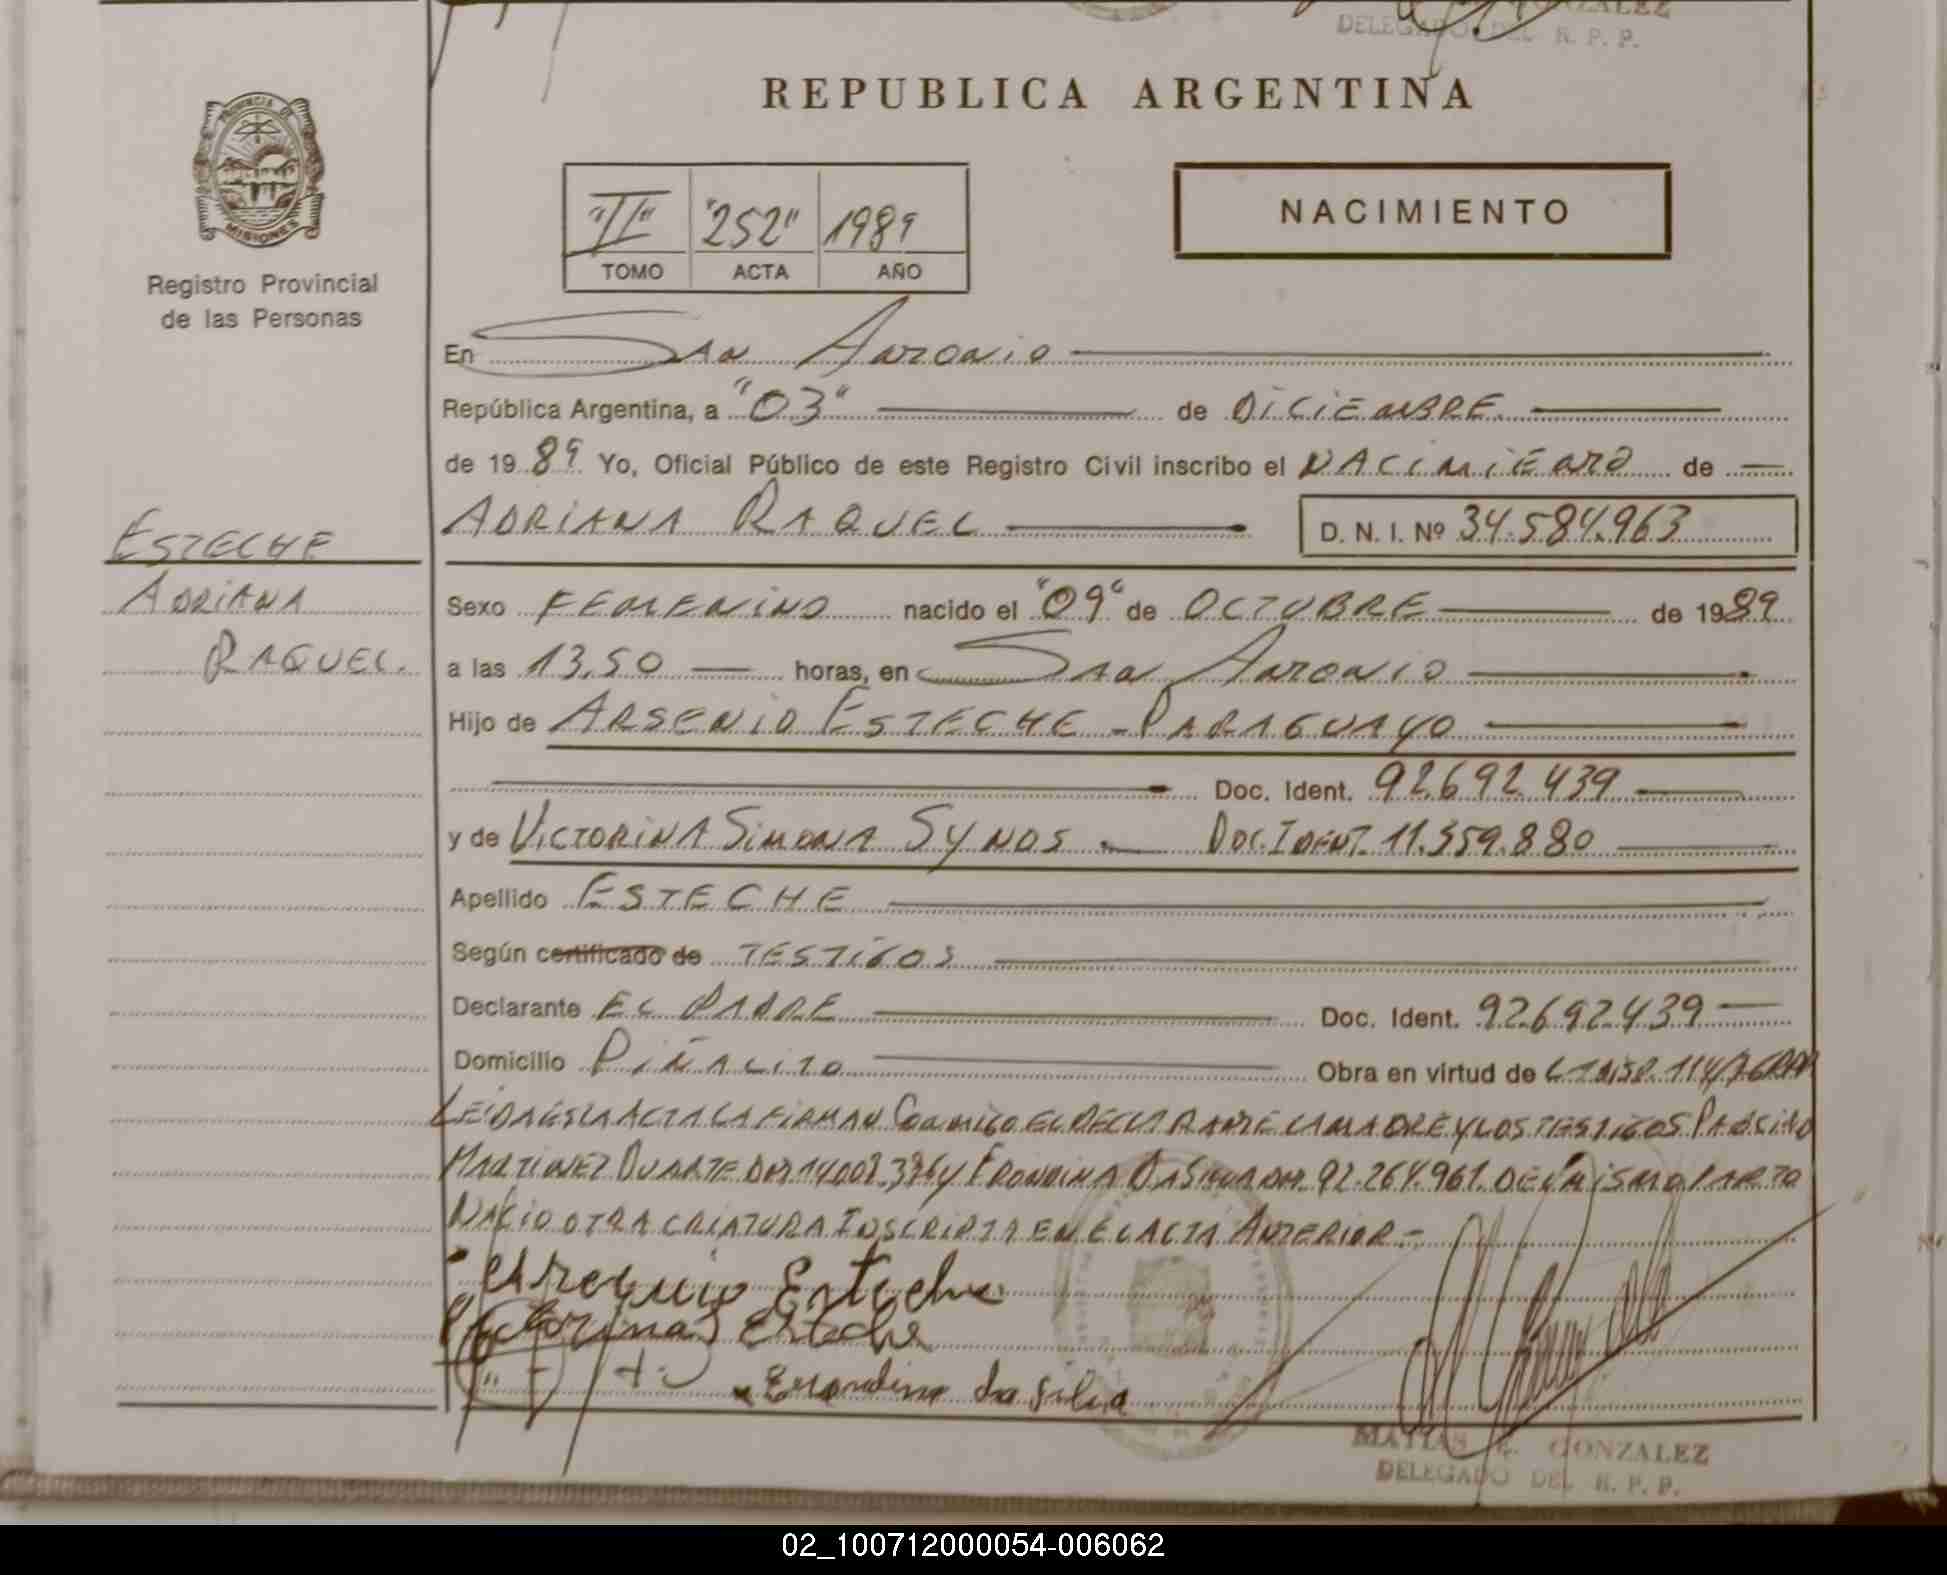 GONZALEZ
DELEGADO DEL R. P. P.
REPUBLICA ARGENTINA
PROVINCIA DE
MISIONES
Registro Provincial
de las Personas
"II" "252" 1989
TOMO ACTA AÑO
NACIMIENTO
En San Antonio
República Argentina, a "03" de Diciembre
de 1989 Yo, Oficial Público de este Registro Civil inscribo el Nacimiento de
Adriana Raquel D. N. I. Nº 34.584.963
Esteche
Adriana
Raquel.
Sexo Femenino nacido el "09" de Octubre de 1989
a las 13.50 horas, en San Antonio
Hijo de Arsenio Esteche - Paraguayo
Doc. Ident. 92.692.439
y de Victorina Simona Synos Doc. Ident. 11.359.880
Apellido Esteche
Según certificado de Testigos
Declarante El Padre Doc. Ident. 92.692.439
Domicilio Piñalito Obra en virtud de
Leida esta acta la firman Conmigo el Declarante la Madre y los Testigos
Martinez Duarte y Da Silva 92.264.961. Del mismo parto
Nacio otra criatura Inscripta en el Acta Anterior.-
Esteche
Victorina S Esteche
da Silva
MATIAS GONZALEZ
DELEGADO DEL R. P. P.
02_100712000054-006062